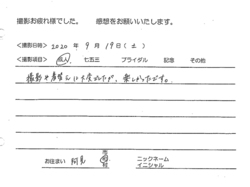 撮影お疲れ様でした。 感想をお願いいたします。
<撮影日時> 2020 年 9 月 19 日 ( 土 )
<撮影項目> 成人 七五三 ブライダル 記念 その他
撮影や着替えに 大変でしたが、楽しかったです。
お住まい 阿見 ニックネーム
イニシャル